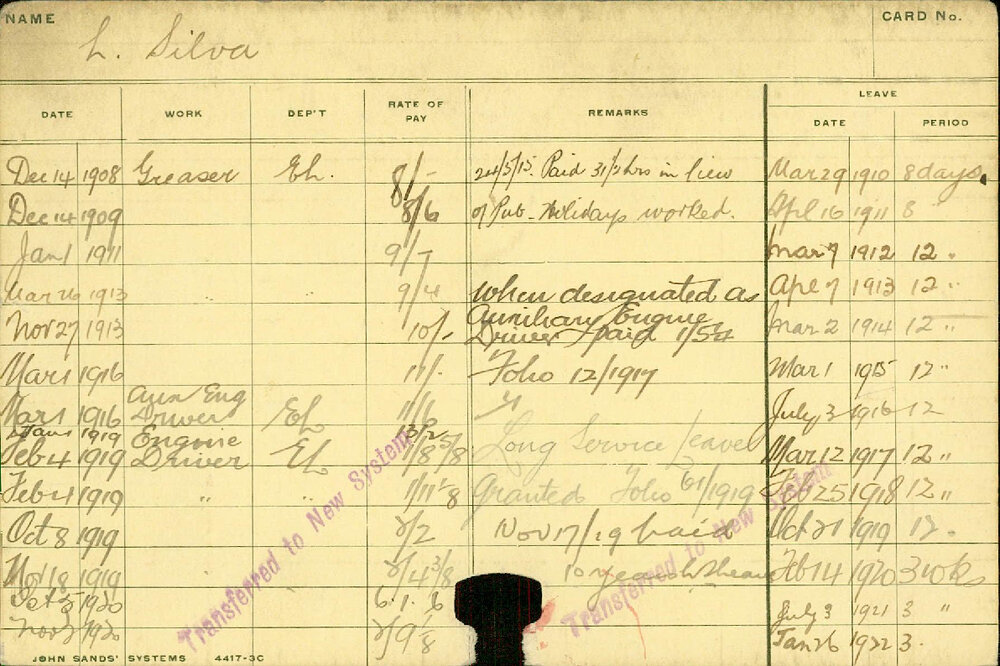 NAME
CARD No.
L. Silva
LEAVE
DATE WORK DEP'T RATE OF PAY REMARKS DATE PERIOD
Dec 14 1908 Greaser Eh. 8/- 24/5/15. Paid 31/2 hrs in lieu Mar 29 1910 8 days.
Dec 14 1909 8/6 of Pub. Holidays worked. Apl 16 1911 8
Jan 1 1911 9/- Mar 7 1912 12 "
Mar 26 1913 9/4 When designated as Apl 7 1913 12 "
Nov 27 1913 10/- Auxiliary Engine Mar 2 1914 12 "
Driver paid
Mar 1 1916 11/- Folio 12/1917 Mar 1 1915 12 "
Aux Eng
Mar 1 1916 Driver Eh 11/6 July 3 1916 12
Jan 1 1919 Engine
Feb 4 1919 Driver Eh Long Service Leave Mar 12 1917 12 "
Feb 4 1919 " " Granted Folio 61/1919 Feb 25 1918 12 "
Oct 8 1919 2/2 Nov 17/19 paid Oct 21 1919 12 "
Nov 18 1919 2/4 3/8 10 years Feb 14 1920 3 wks
Oct 5 1920 6. 1. 6 July 3 1921 3 "
Nov 1920 Jan 26 1922 3.
Transferred to New System
Transferred to New System
JOHN SANDS' SYSTEMS 4417-3C